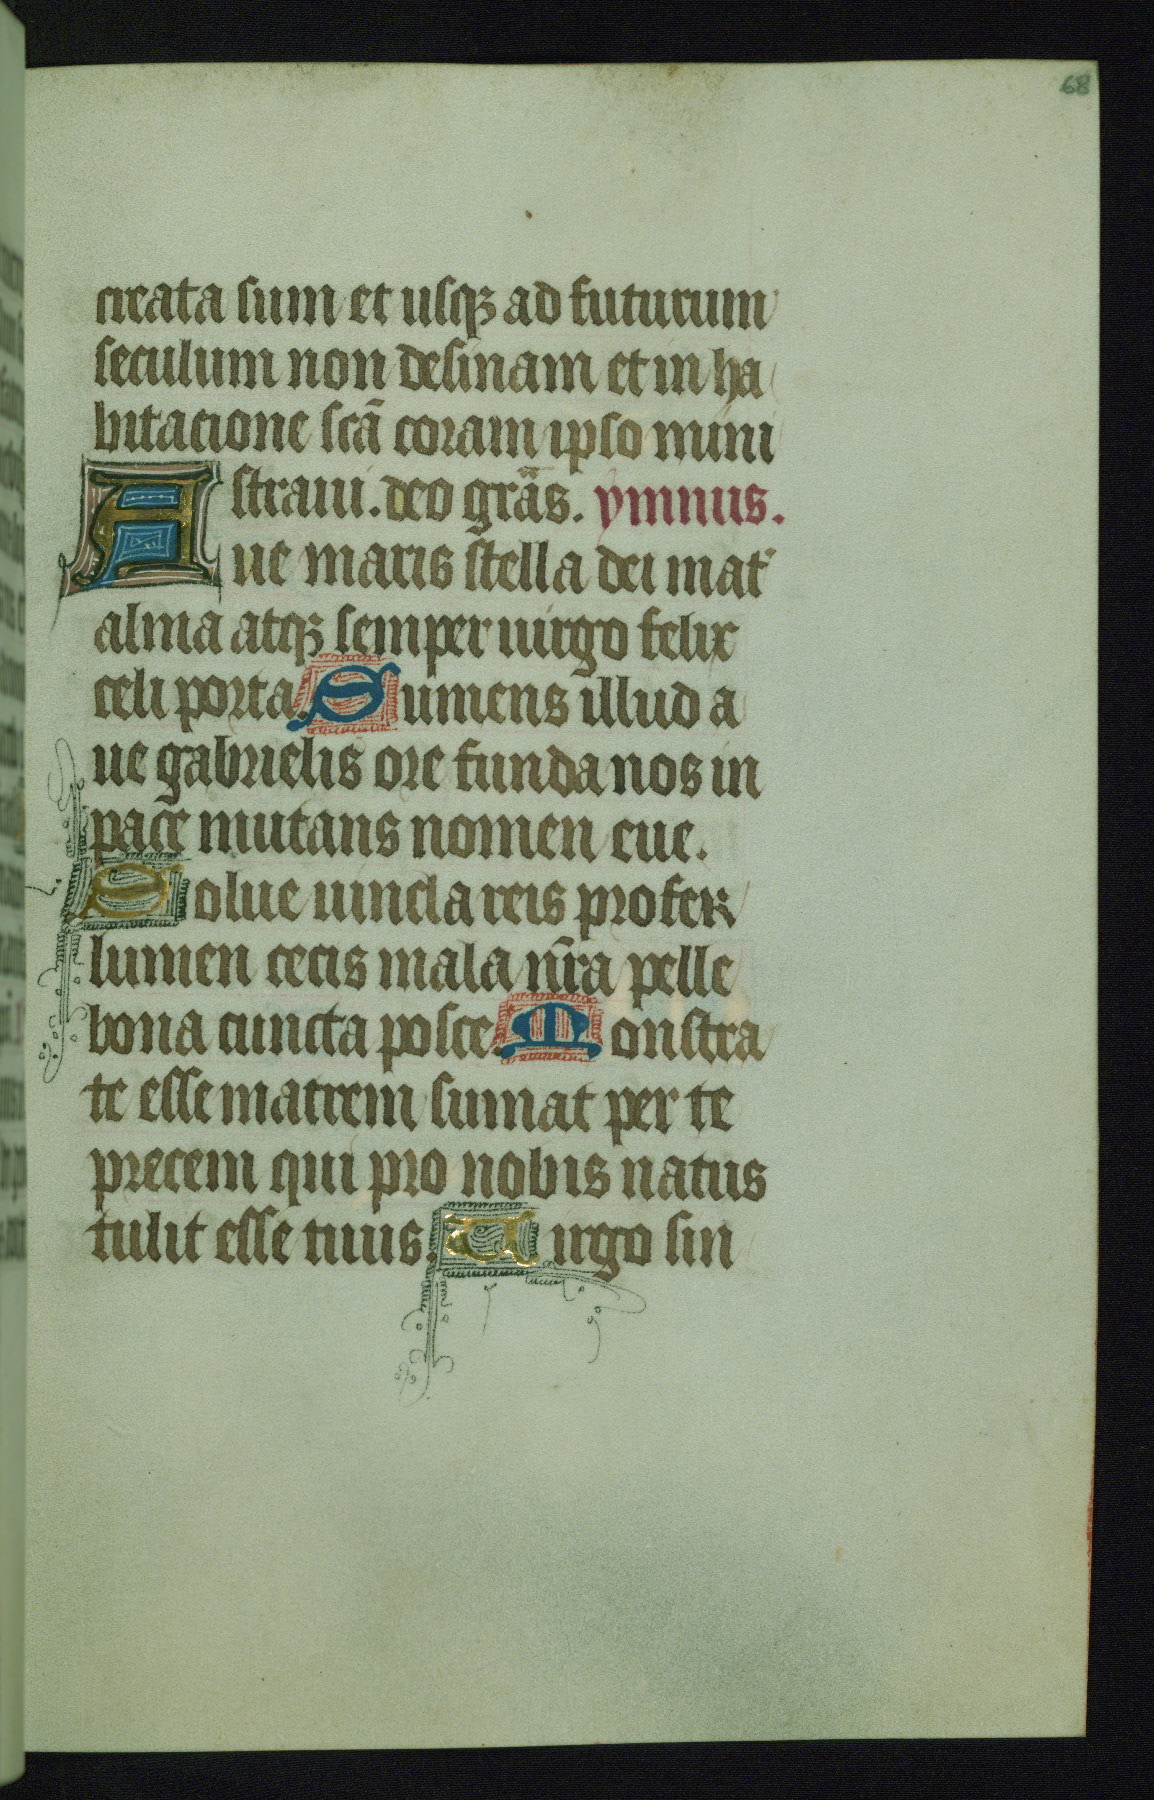 68
creata sum et usqꝫ ad futurum
seculum non desinam et in ha
bitacione scā coram ipso mini
straui. deo grās. ymnus.
Aue maris stella dei mat᷑
alma atqꝫ semper uirgo felix
celi porta. Sumens illud a
ue gabrielis ore funda nos in
pace mutans nomen eue.
Solue uincla reis profer
lumen cecis mala nr̄a pelle
bona cuncta posce. Monstra
te esse matrem sumat per te
precem qui pro nobis natus
tulit esse tuus. Uirgo sin